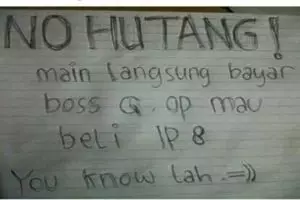 NO HUTANG!
main langsung bayar
boss G. op mau
beli IP 8
You know lah .=))